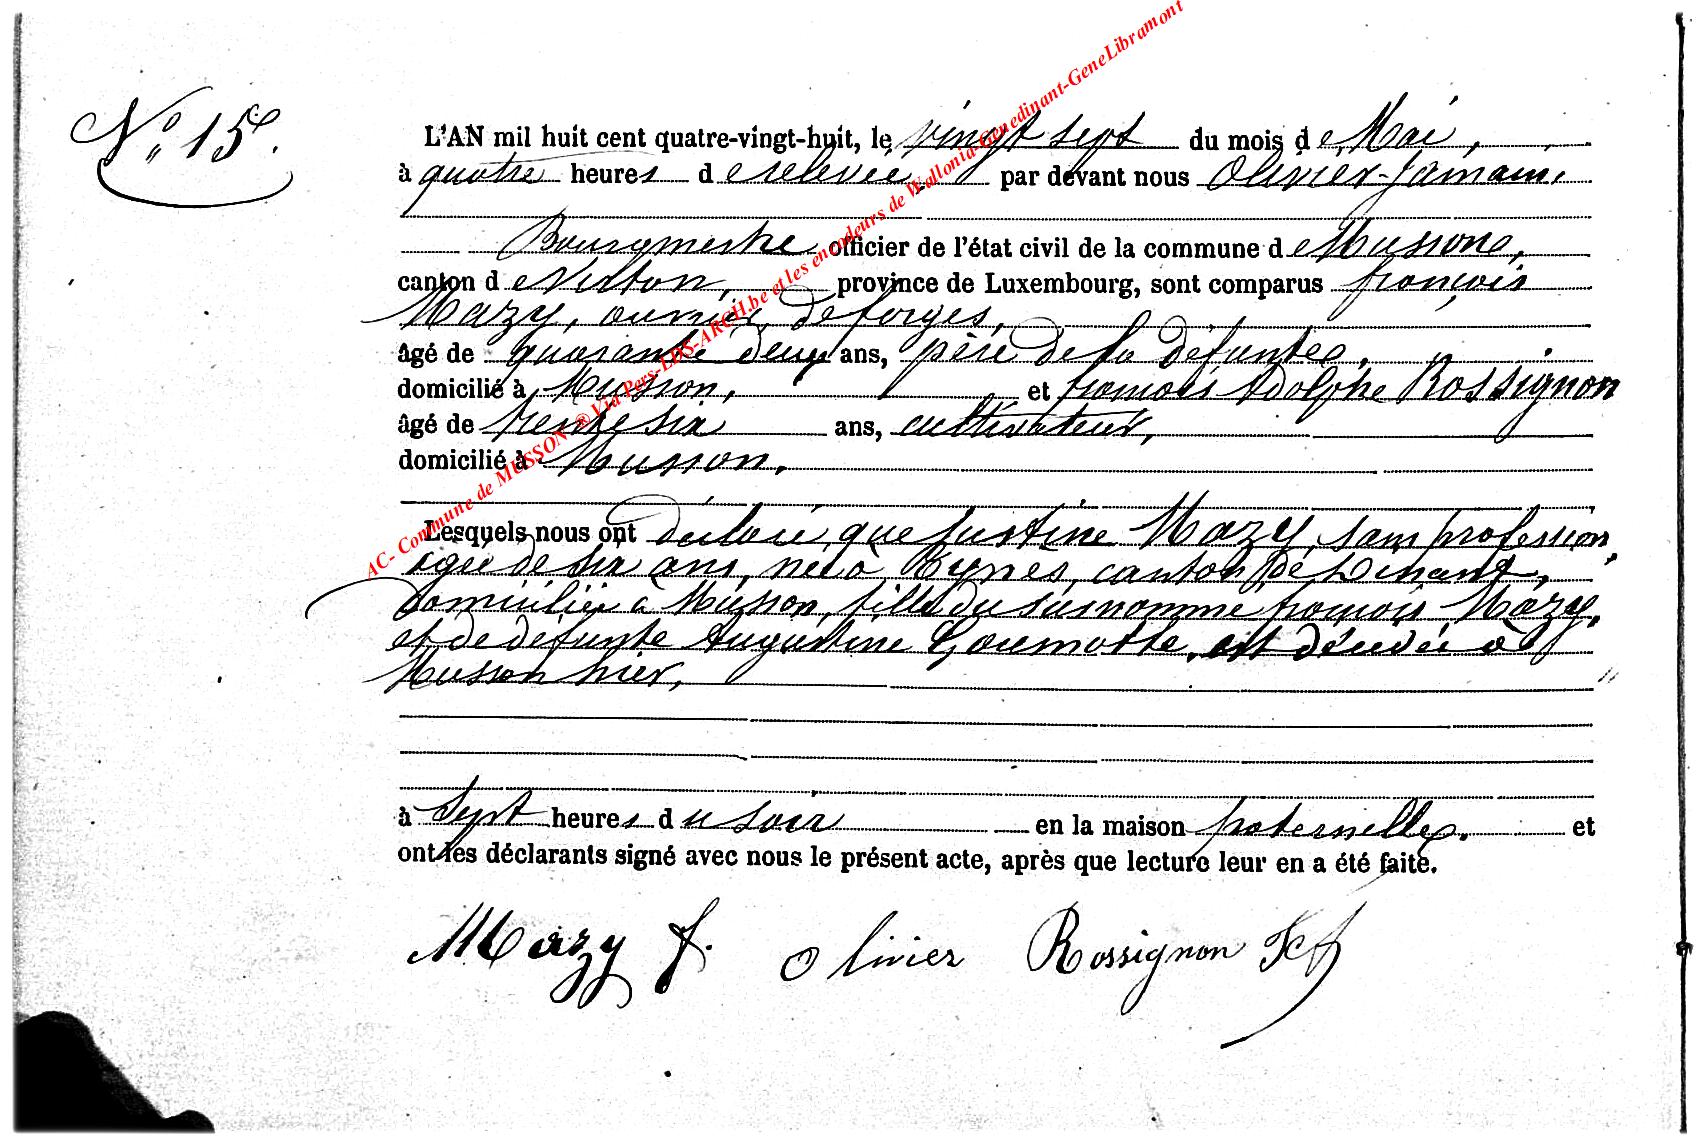 N° 15.
L'AN mil huit cent quatre-vingt-huit, le vingt sept du mois de Mai,
à quatre heures de relevée, par devant nous Olivier-Jamain,
Bourgmestre officier de l'état civil de la commune de Musson,
canton de Virton, province de Luxembourg, sont comparus françois
Mazy, ouvrier de forges,
âgé de quarante deux ans, père de la défunte,
domicilié à Musson, et françois Adolphe Rossignon
âgé de trente six ans, cultivateur,
domicilié à Musson,
Lesquels nous ont déclaré que Justine Mazy, sans profession,
agée de six ans, née à canton de Dinant,
domiciliée à Musson, fille du susnommé françois Mazy,
et de défunte Augustine Goumotte, est décédée à
Musson hier,
à Sept heures du soir en la maison paternelle. et
ont les déclarants signé avec nous le présent acte, après que lecture leur en a été faite.
Mazy f. Olivier Rossignon
AC- Commune de MUSSON ® Via Pers-LDS-ARCH.be et les encodeurs de Wallonia-Genedinant-GeneLibramont